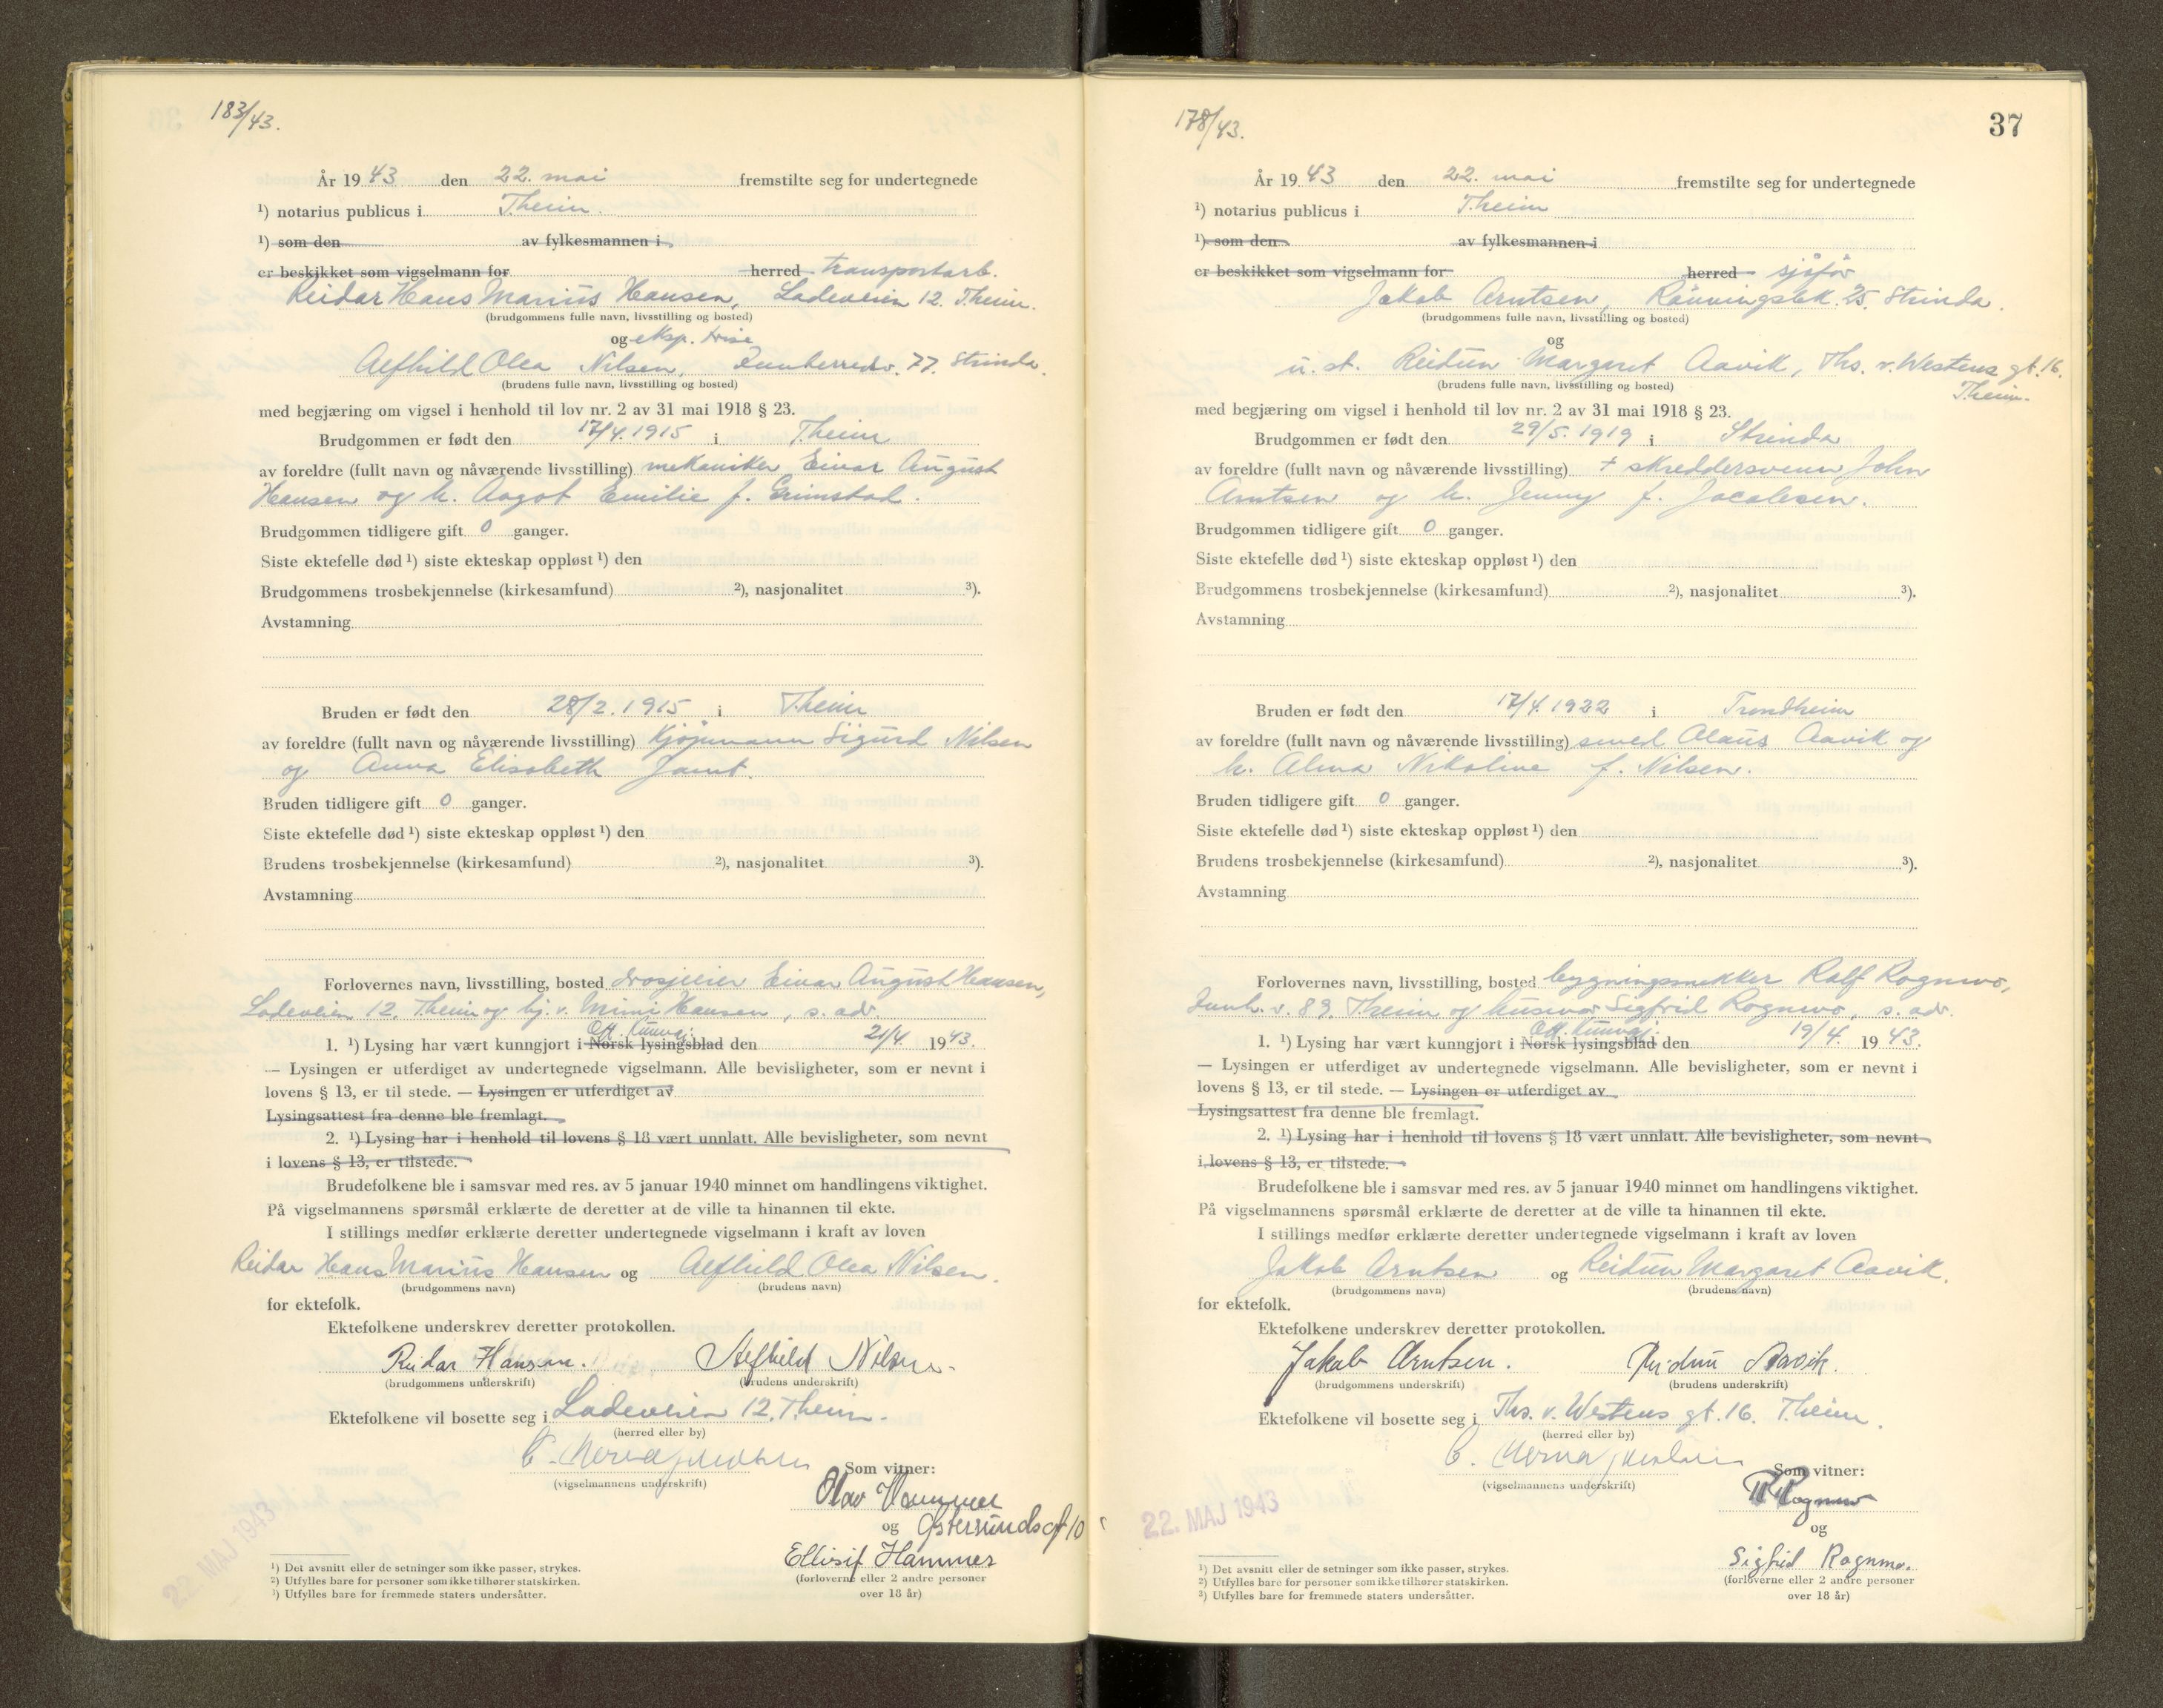 183/43.
År 1943 den 22. mai fremstilte seg for undertegnede
¹) notarius publicus i T.heim.
¹) som den av fylkesmannen i
er beskikket som vigselmann for herred transportarb.
Reidar Hans Marius Hansen, Ladeveien 12. T.heim.
(brudgommens fulle navn, livsstilling og bosted)
og eksp. trise
Alfhild Olea Nilsen, Innherredsv. 77. Strinda.
(brudens fulle navn, livsstilling og bosted)
med begjæring om vigsel i henhold til lov nr. 2 av 31 mai 1918 § 23.
Brudgommen er født den 17/4. 1915 i T.heim
av foreldre (fullt navn og nåværende livsstilling) mekaniker Einar August
Hansen og h. Aagot Emilie f. Grimstad.
Brudgommen tidligere gift 0 ganger.
Siste ektefelle død ¹) siste ekteskap oppløst ¹) den
Brudgommens trosbekjennelse (kirkesamfund) ²), nasjonalitet ³).
Avstamning
Bruden er født den 28/2. 1915 i T.heim
av foreldre (fullt navn og nåværende livsstilling) Kjøpmann Sigurd Nilsen
og Anna Elisabeth Jamt.
Bruden tidligere gift 0 ganger.
Siste ektefelle død ¹) siste ekteskap oppløst ¹) den
Brudens trosbekjennelse (kirkesamfund) ²), nasjonalitet ³).
Avstamning
Forlovernes navn, livsstilling, bosted drosjeeier Einar August Hansen,
Ladeveien 12. T.heim og hj. v. Mimi Hansen, s. adr.
Off. Kunngj.
1. ¹) Lysing har vært kunngjort i Norsk lysingsblad den 21/4. 1943.
— Lysingen er utferdiget av undertegnede vigselmann. Alle bevisligheter, som er nevnt i
lovens § 13, er til stede. — Lysingen er utferdiget av
Lysingsattest fra denne ble fremlagt.
2. ¹) Lysing har i henhold til lovens § 18 vært unnlatt. Alle bevisligheter, som nevnt
i lovens § 13, er tilstede.
Brudefolkene ble i samsvar med res. av 5 januar 1940 minnet om handlingens viktighet.
På vigselmannens spørsmål erklærte de deretter at de ville ta hinannen til ekte.
I stillings medfør erklærte deretter undertegnede vigselmann i kraft av loven
Reidar Hans Marius Hansen og Alfhild Olea Nilsen.
(brudgommens navn) (brudens navn)
for ektefolk.
Ektefolkene underskrev deretter protokollen.
Reidar Hansen. Alfhild Nilsen.
(brudgommens underskrift) (brudens underskrift)
Ektefolkene vil bosette seg i Ladeveien 12. T.heim.
(herred eller by)
Som vitner:
(vigselmannens underskrift)
Olav Hammer
og Østersundsgt 10
Ellisif Hammer
(forloverne eller 2 andre personer
over 18 år)
22. MAJ 1943
¹) Det avsnitt eller de setninger som ikke passer, strykes.
²) Utfylles bare for personer som ikke tilhører statskirken.
³) Utfylles bare for fremmede staters undersåtter.
178/43.
37
År 1943 den 22. mai fremstilte seg for undertegnede
¹) notarius publicus i T.heim
¹) som den av fylkesmannen i
er beskikket som vigselmann for herred sjåfør
Jakob Arntsen, Rønningsbk. 25. Strinda.
(brudgommens fulle navn, livsstilling og bosted)
og
u. st. Reidun Margaret Aavik, Ths. v. Westens gt. 16.
T.heim.
(brudens fulle navn, livsstilling og bosted)
med begjæring om vigsel i henhold til lov nr. 2 av 31 mai 1918 § 23.
Brudgommen er født den 29/5. 1919 i Strinda
av foreldre (fullt navn og nåværende livsstilling) + skreddersvenn John
Arntsen og h. Jenny f. Jacobsen.
Brudgommen tidligere gift 0 ganger.
Siste ektefelle død ¹) siste ekteskap oppløst ¹) den
Brudgommens trosbekjennelse (kirkesamfund) ²), nasjonalitet ³).
Avstamning
Bruden er født den 17/4. 1922 i Trondheim
av foreldre (fullt navn og nåværende livsstilling) smed Olaus Aavik og
h. Alma Nikoline f. Nilsen.
Bruden tidligere gift 0 ganger.
Siste ektefelle død ¹) siste ekteskap oppløst ¹) den
Brudens trosbekjennelse (kirkesamfund) ²), nasjonalitet ³).
Avstamning
Forlovernes navn, livsstilling, bosted bygningssnekker Ralf Rognmo,
Innh. v. 89. T.heim og husmor Sigfrid Rognmo, s. adr.
Off. Kunngj.
1. ¹) Lysing har vært kunngjort i Norsk lysingsblad den 19/4. 1943.
— Lysingen er utferdiget av undertegnede vigselmann. Alle bevisligheter, som er nevnt i
lovens § 13, er til stede. — Lysingen er utferdiget av
Lysingsattest fra denne ble fremlagt.
2. ¹) Lysing har i henhold til lovens § 18 vært unnlatt. Alle bevisligheter, som nevnt
i lovens § 13, er tilstede.
Brudefolkene ble i samsvar med res. av 5 januar 1940 minnet om handlingens viktighet.
På vigselmannens spørsmål erklærte de deretter at de ville ta hinannen til ekte.
I stillings medfør erklærte deretter undertegnede vigselmann i kraft av loven
Jakob Arntsen og Reidun Margaret Aavik.
(brudgommens navn) (brudens navn)
for ektefolk.
Ektefolkene underskrev deretter protokollen.
Jakob Arntsen. Reidun Aavik.
(brudgommens underskrift) (brudens underskrift)
Ektefolkene vil bosette seg i Ths. v. Westens gt. 16. T.heim.
(herred eller by)
Som vitner:
(vigselmannens underskrift)
R Rognmo
og
Sigfrid Rognmo.
(forloverne eller 2 andre personer
over 18 år)
22. MAJ 1943
¹) Det avsnitt eller de setninger som ikke passer, strykes.
²) Utfylles bare for personer som ikke tilhører statskirken.
³) Utfylles bare for fremmede staters undersåtter.